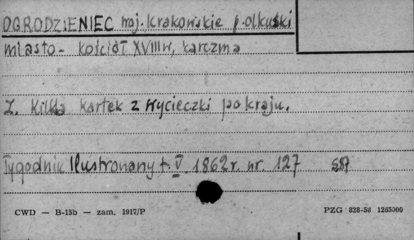 OGRODZIENIEC woj. krakowskie p. olkuski
miasto - kościół XVIII w, karczma
Z. Kilka kartek z wycieczki po kraju.
Tygodnik Ilustrowany t. V 1862 r. nr. 127
CWD — B-15b — zam. 1917/P
PZG 828-56 1265000